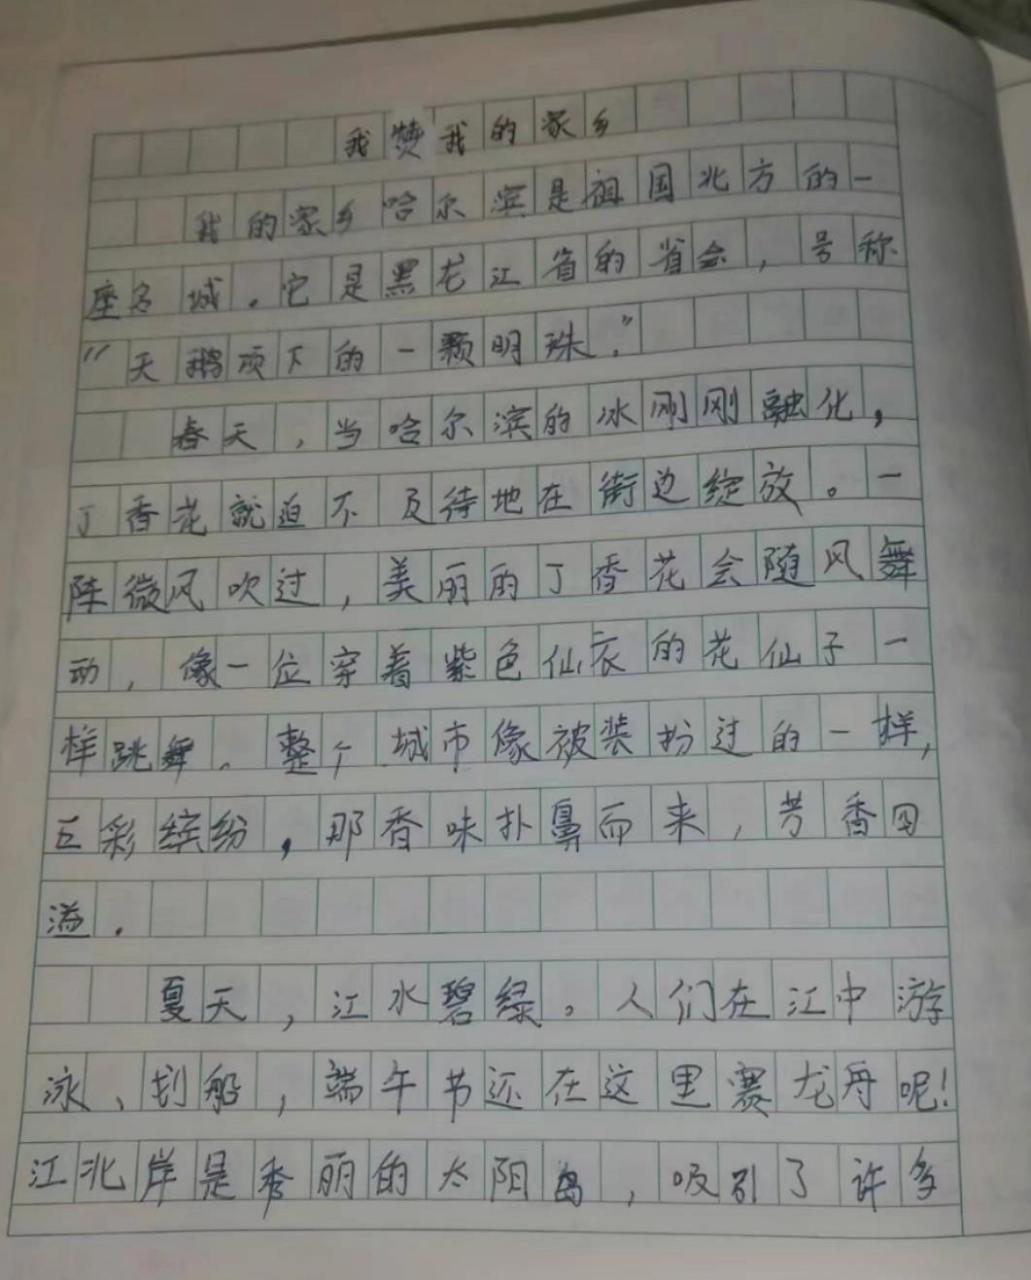 我赞我的家乡
我的家乡哈尔滨是祖国北方的一
座名城.它是黑龙江省的省会,号称
“天鹅项下的一颗明珠.”
春天,当哈尔滨的冰刚刚融化,
丁香花就迫不及待地在街边绽放。一
阵微风吹过,美丽的丁香花会随风舞
动,像一位穿着紫色仙衣的花仙子一
样跳舞。整个城市像被装扮过的一样,
五彩缤纷,那香味扑鼻而来,芳香四
溢.
夏天,江水碧绿。人们在江中游
泳、划船,端午节还在这里赛龙舟呢!
江北岸是秀丽的太阳岛,吸引了许多